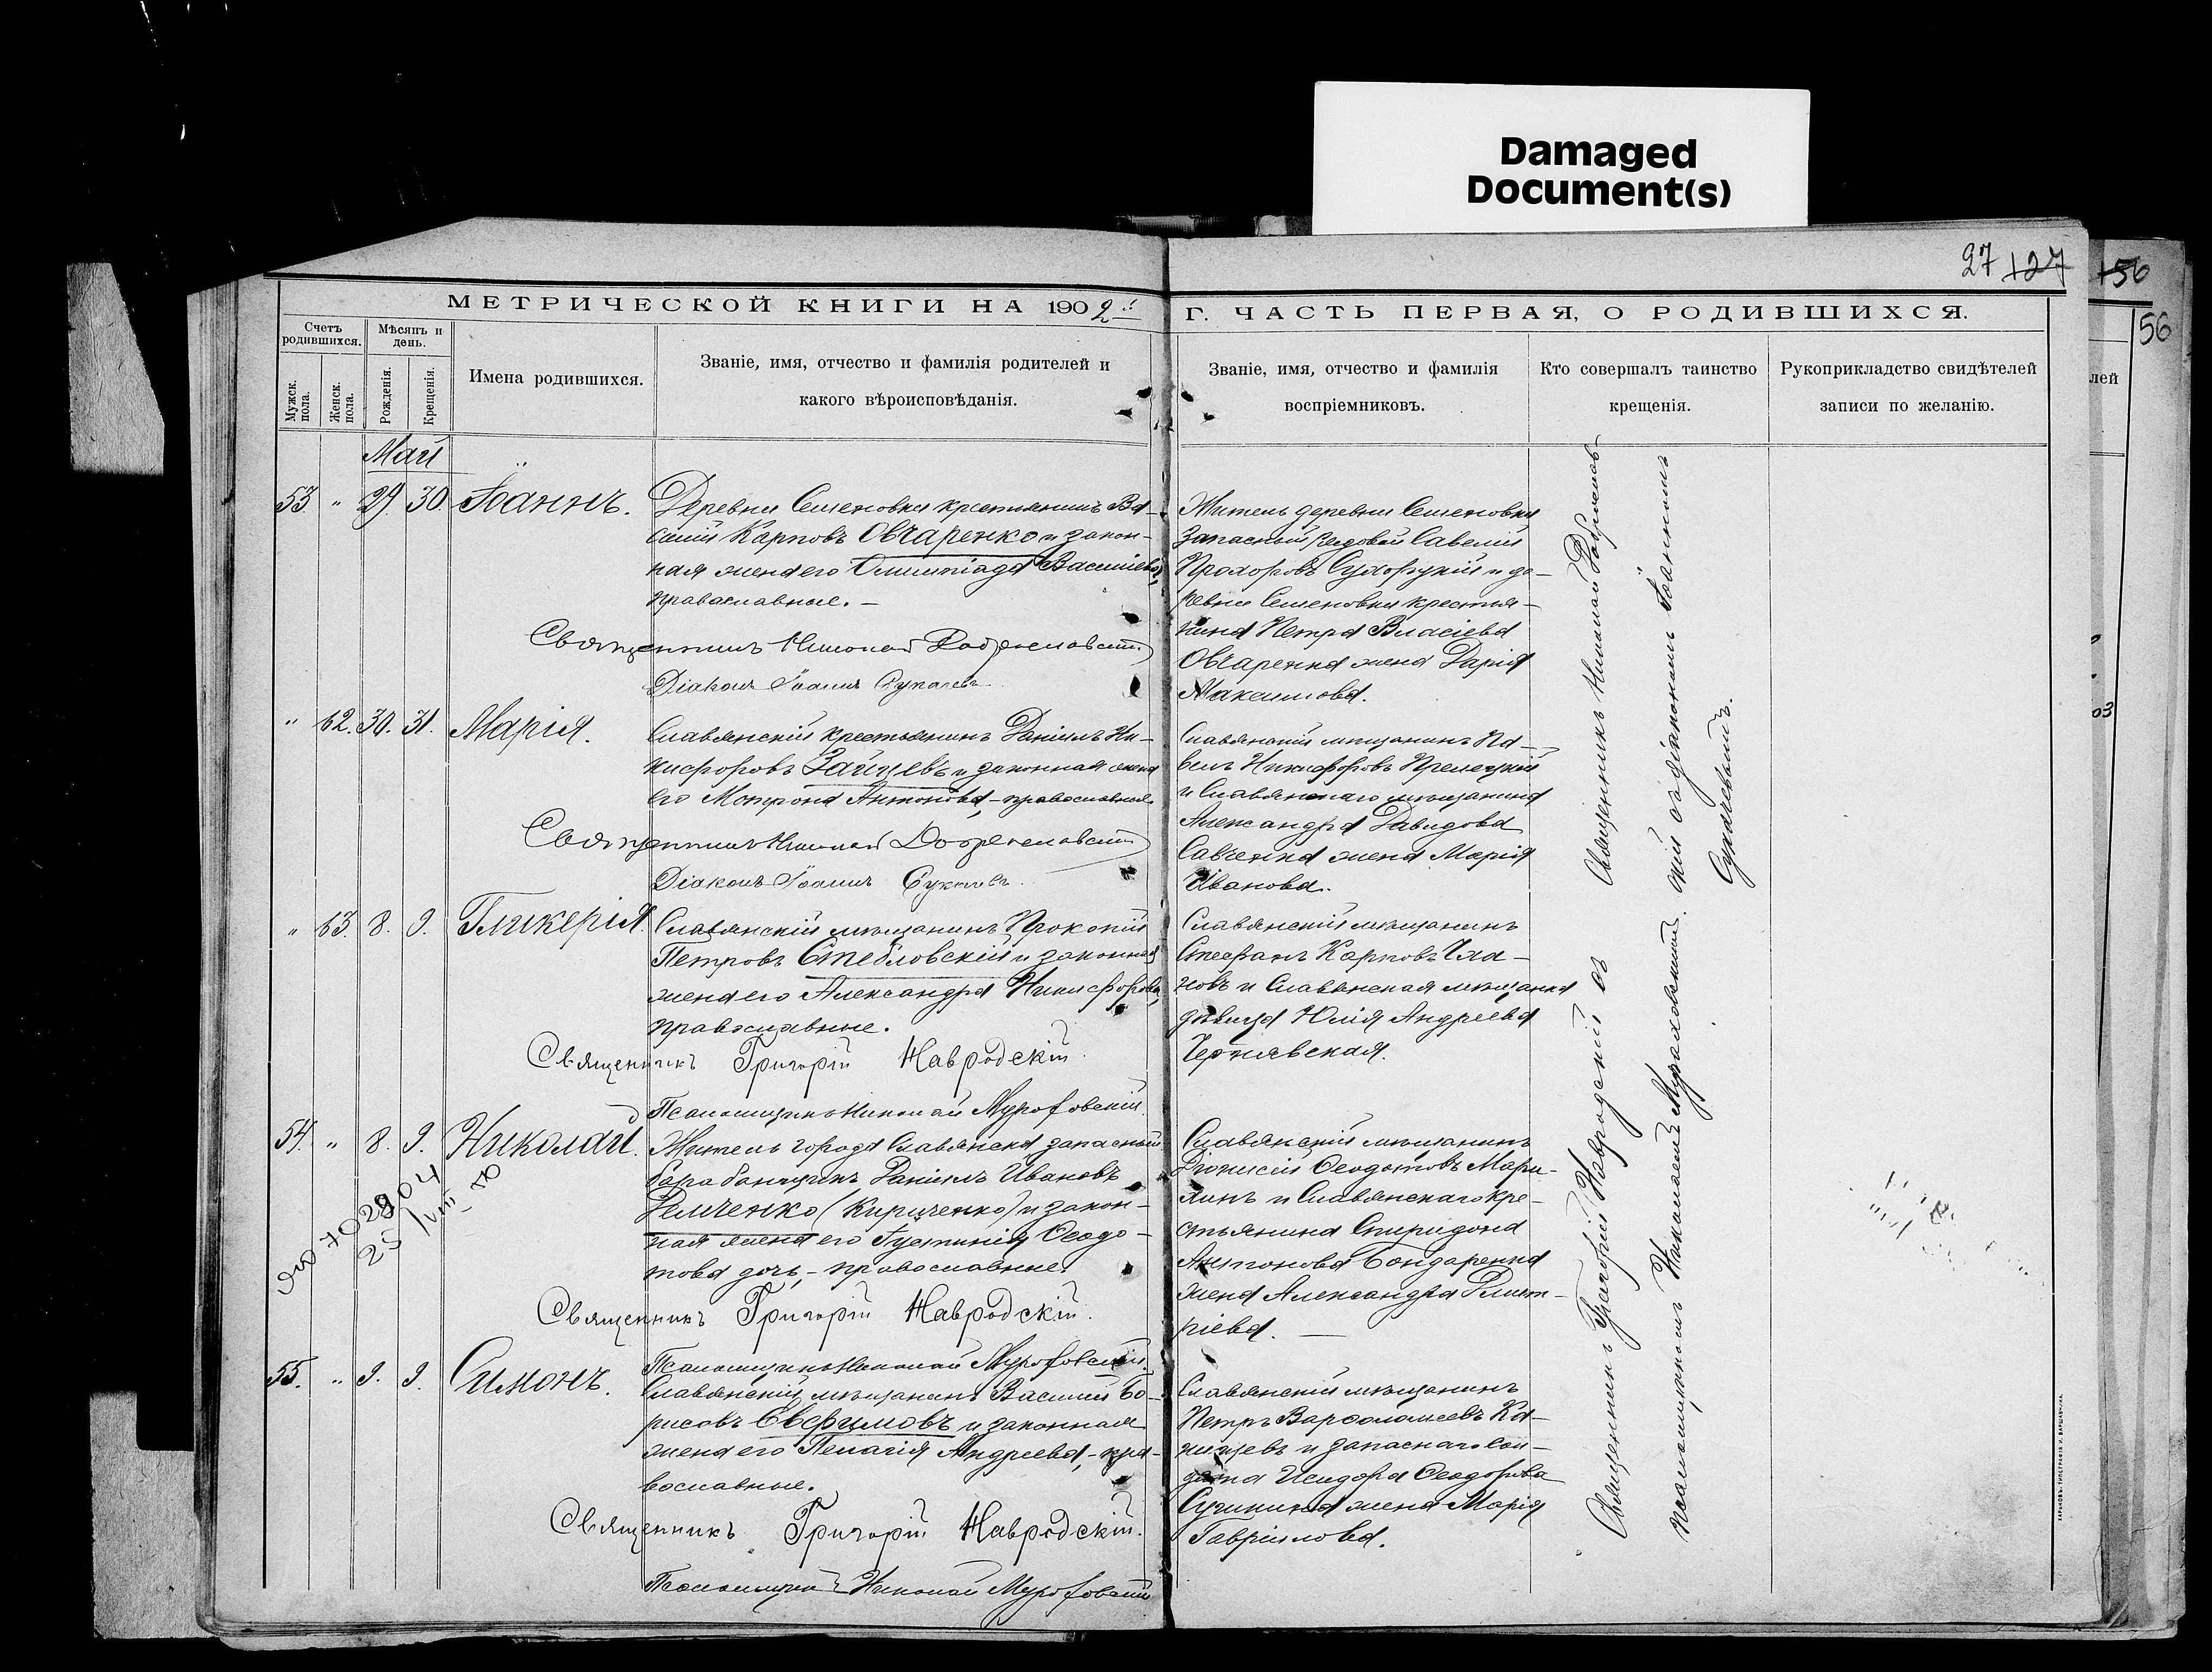 Damaged
Document(s)
27 127
156
56
МЕТРИЧЕСКОЙ КНИГИ НА 1902
Г. ЧАСТЬ ПЕРВАЯ, О РОДИВШИХСЯ.
Счетъ родившихся.
Мужск. пола.
Женск. пола.
Мѣсяцъ и день.
Рожденія.
Крещенія.
Имена родившихся.
Званіе, имя, отчество и фамилія родителей и
какого вѣроисповѣданія.
Званіе, имя, отчество и фамилія
воспріемниковъ.
Кто совершалъ таинство
крещенія.
Рукоприкладство свидѣтелей
записи по желанію.
лей
Май
53. " 29 30 Іоаннъ.
Деревни Семеновки крестьянинъ Ва-
силій Карповъ Овчаренко и закон-
ная жена его Олимпіада Васильева,
православные. –
Священникъ Николай
Діаконъ Іоаннъ Сукачевъ
Житель деревни Семеновки
Запасный рядовой Савелій
Прохоровъ и де-
ревни Семеновки крестья-
нина Петра Власіева
Овчаренка жена Дарія
Максимова.
" 62. 30. 31. Марія.
Славянскій крестьянинъ Даніилъ Ни-
кифоровъ Зайцевъ и законная жена
его Матрона Антонова, – православные.
Священникъ Николай
Діаконъ Іоаннъ Сукачевъ.
Славянскій мѣщанинъ Па-
велъ Никифоровъ
и Славянскаго мѣщанина
Александра Давидова
Савченка жена Марія
Иванова.
" 63. 8. 9. Гликерія
Славянскій мѣщанинъ Прокопій
Петровъ Стебловскій и законная
жена его Александра Никифорова,
православные.
Священникъ Григорій Навродскій.
Псаломщикъ Николай
Славянскій мѣщанинъ
Стефанъ Карповъ
новъ и Славянская мѣщанка
дѣвица Юлія Андреева
Чернявская.
54. " 8. 9. Николай.
Житель города Славянска, запасный
барабанщикъ Даніилъ Ивановъ
Демченко (Кириченко) и закон-
ная жена его Іустинія Ѳеодо-
това дочь, – православные.
Священникъ Григорій Навродскій.
Псаломщикъ Николай
Славянскій мѣщанинъ
Діонисій Ѳеодотовъ Мари-
хинъ и Славянскаго кре-
стьянина Спиридона
Антонова Бондаренка
жена Александра Димит-
ріева. —
25/VIII
55. " 9. 9. Симонъ.
Славянскій мѣщанинъ Василій Бо-
рисовъ Евфимовъ и законная
жена его Пелагія Андреева, – пра-
вославные.
Священникъ Григорій Навродскій.
Псаломщикъ Николай
Славянскій мѣщанинъ
Петръ Варѳоломеевъ Ка-
и запаснаго сол-
дата Исидора Ѳеодорова
жена Марія
Гавріилова.
Священникъ Николай
скій съ діакономъ Іоанномъ
Сукачевымъ.
Священникъ Григорій Навродскій съ
псаломщикомъ Николаемъ